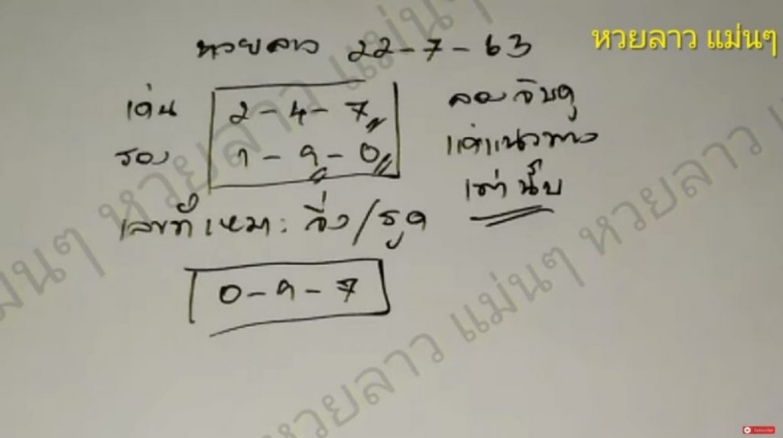 หวยลาว แม่นๆ
หวยลาว 22-7-63
เด่น 2-4-7
รอง 1-9-0
ลองจับดู
แค่แนวทาง
เท่านั้น
เลขที่เหมาะ วิ่ง/รูด
0-9-7
หวยลาว แม่นๆ
หวยลาว แม่นๆ
Subscribe